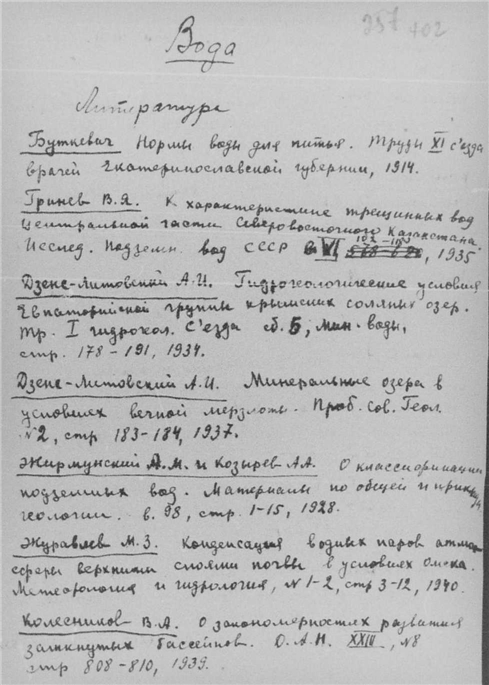 257 402
Вода
Литература
Буткевич Нормы воды для питья. Труды XI с'езда
врачей Екатеринославской губернии, 1914.
Гринев В.Я. К характеристике трещинных вод
Центральной части Северовосточного Казахстана.
Исслед. Подземн. вод СССР в VI 102-103, 1935
Дзенс-Литовский А.И. Гидрогеологические условия
Евпаторийской группы крымских соляных озер.
Тр. I гидрогеол. С'езда сб. 5, мин. воды,
стр. 178-191, 1934.
Дзенс-Литовский А.И. Минеральные озера в
условиях вечной мерзлоты. Проб. Сов. Геол.
№2, стр 183-184, 1937.
Жирмунский А.М. и Козырев А.А. О классификации
подземных вод. Материалы по общей и прикл.
геологии. в. 98, стр. 1-15, 1928.
Журавлев М.З. Конденсация водных паров атмо
сферы верхними слоями почвы в условиях Омска.
Метеорология и гидрология, №1-2, стр 3-12, 1940.
Колесников В.А. О закономерностях развития
замкнутых бассейнов. О.А.Н. XXIV, №8
стр 808-810, 1939.